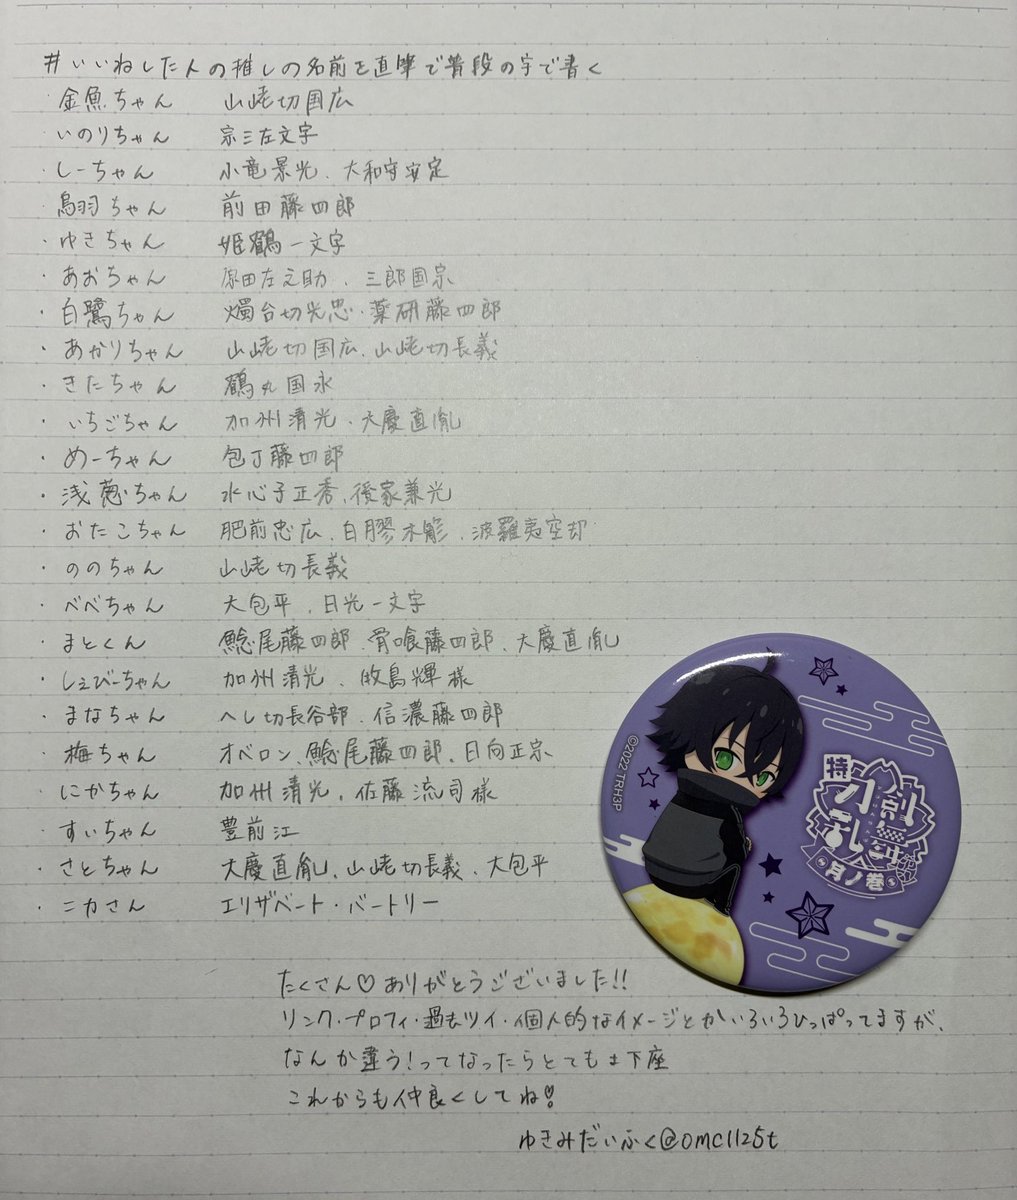 #いいねした人の推しの名前を直筆で普段の字で書く
・金魚ちゃん 山姥切国広
・いのりちゃん 宗三左文字
・しーちゃん 小竜景光、大和守安定
・鳥羽ちゃん 前田藤四郎
・ゆきちゃん 姫鶴一文字
・あおちゃん 原田左之助、三郎国宗
・白鷺ちゃん 燭台切光忠・薬研藤四郎
・あかりちゃん 山姥切国広、山姥切長義
・きたちゃん 鶴丸国永
・いちごちゃん 加州清光、大慶直胤
・めーちゃん 包丁藤四郎
・浅葱ちゃん 水心子正秀、後家兼光
・おたこちゃん 肥前忠広、白膠木簓、波羅夷空却
・ののちゃん 山姥切長義
・べべちゃん 大包平、日光一文字
・まとくん 鯰尾藤四郎、骨喰藤四郎、大慶直胤
・しぇびーちゃん 加州清光、牧島輝様
・まなちゃん へし切長谷部、信濃藤四郎
・梅ちゃん オベロン、鯰尾藤四郎、日向正宗
・にかちゃん 加州清光、佐藤流司様
・すぃちゃん 豊前江
・さとちゃん 大慶直胤、山姥切長義、大包平
・ニカさん エリザベート・バートリー
©2022 TRH3P
特
刀剣
乱舞
月ノ巻
たくさん♡ありがとうございました!!
リンク・プロフィ・過去ツイ・個人的なイメージとかいろいろひっぱってますが、
なんか違う!ってなったらとても土下座
これからも仲良くしてね!
ゆきみだいふく@omc1125t